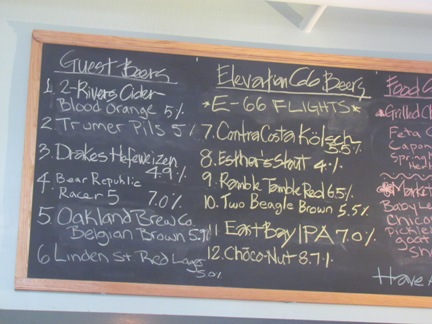 Guest Beers
1. 2-Rivers Cider
Blood Orange 5%
2. Trumer Pils 5%
3. Drakes Hefeweizen
4.9%
4. Bear Republic
Racer 5 7.0%
5. Oakland Brew Co.
Belgian Brown
6. Linden St Red Lager
5.0%
Elevation 66 Beers
*E-66 FLIGHTS*
7. Contra Costa Kölsch
5.5%
8. Esther's Stout 4.%
9. Ramble Tamble Red 6.5%
10. Two Beagle Brown 5.5%
11 East Bay IPA 7.0%
12. Choco-Nut 8.7%
Food
Grilled Ch
Feta C
Capon
Spring
Market
Baby Le
Chico
Pickle
goat
Have A